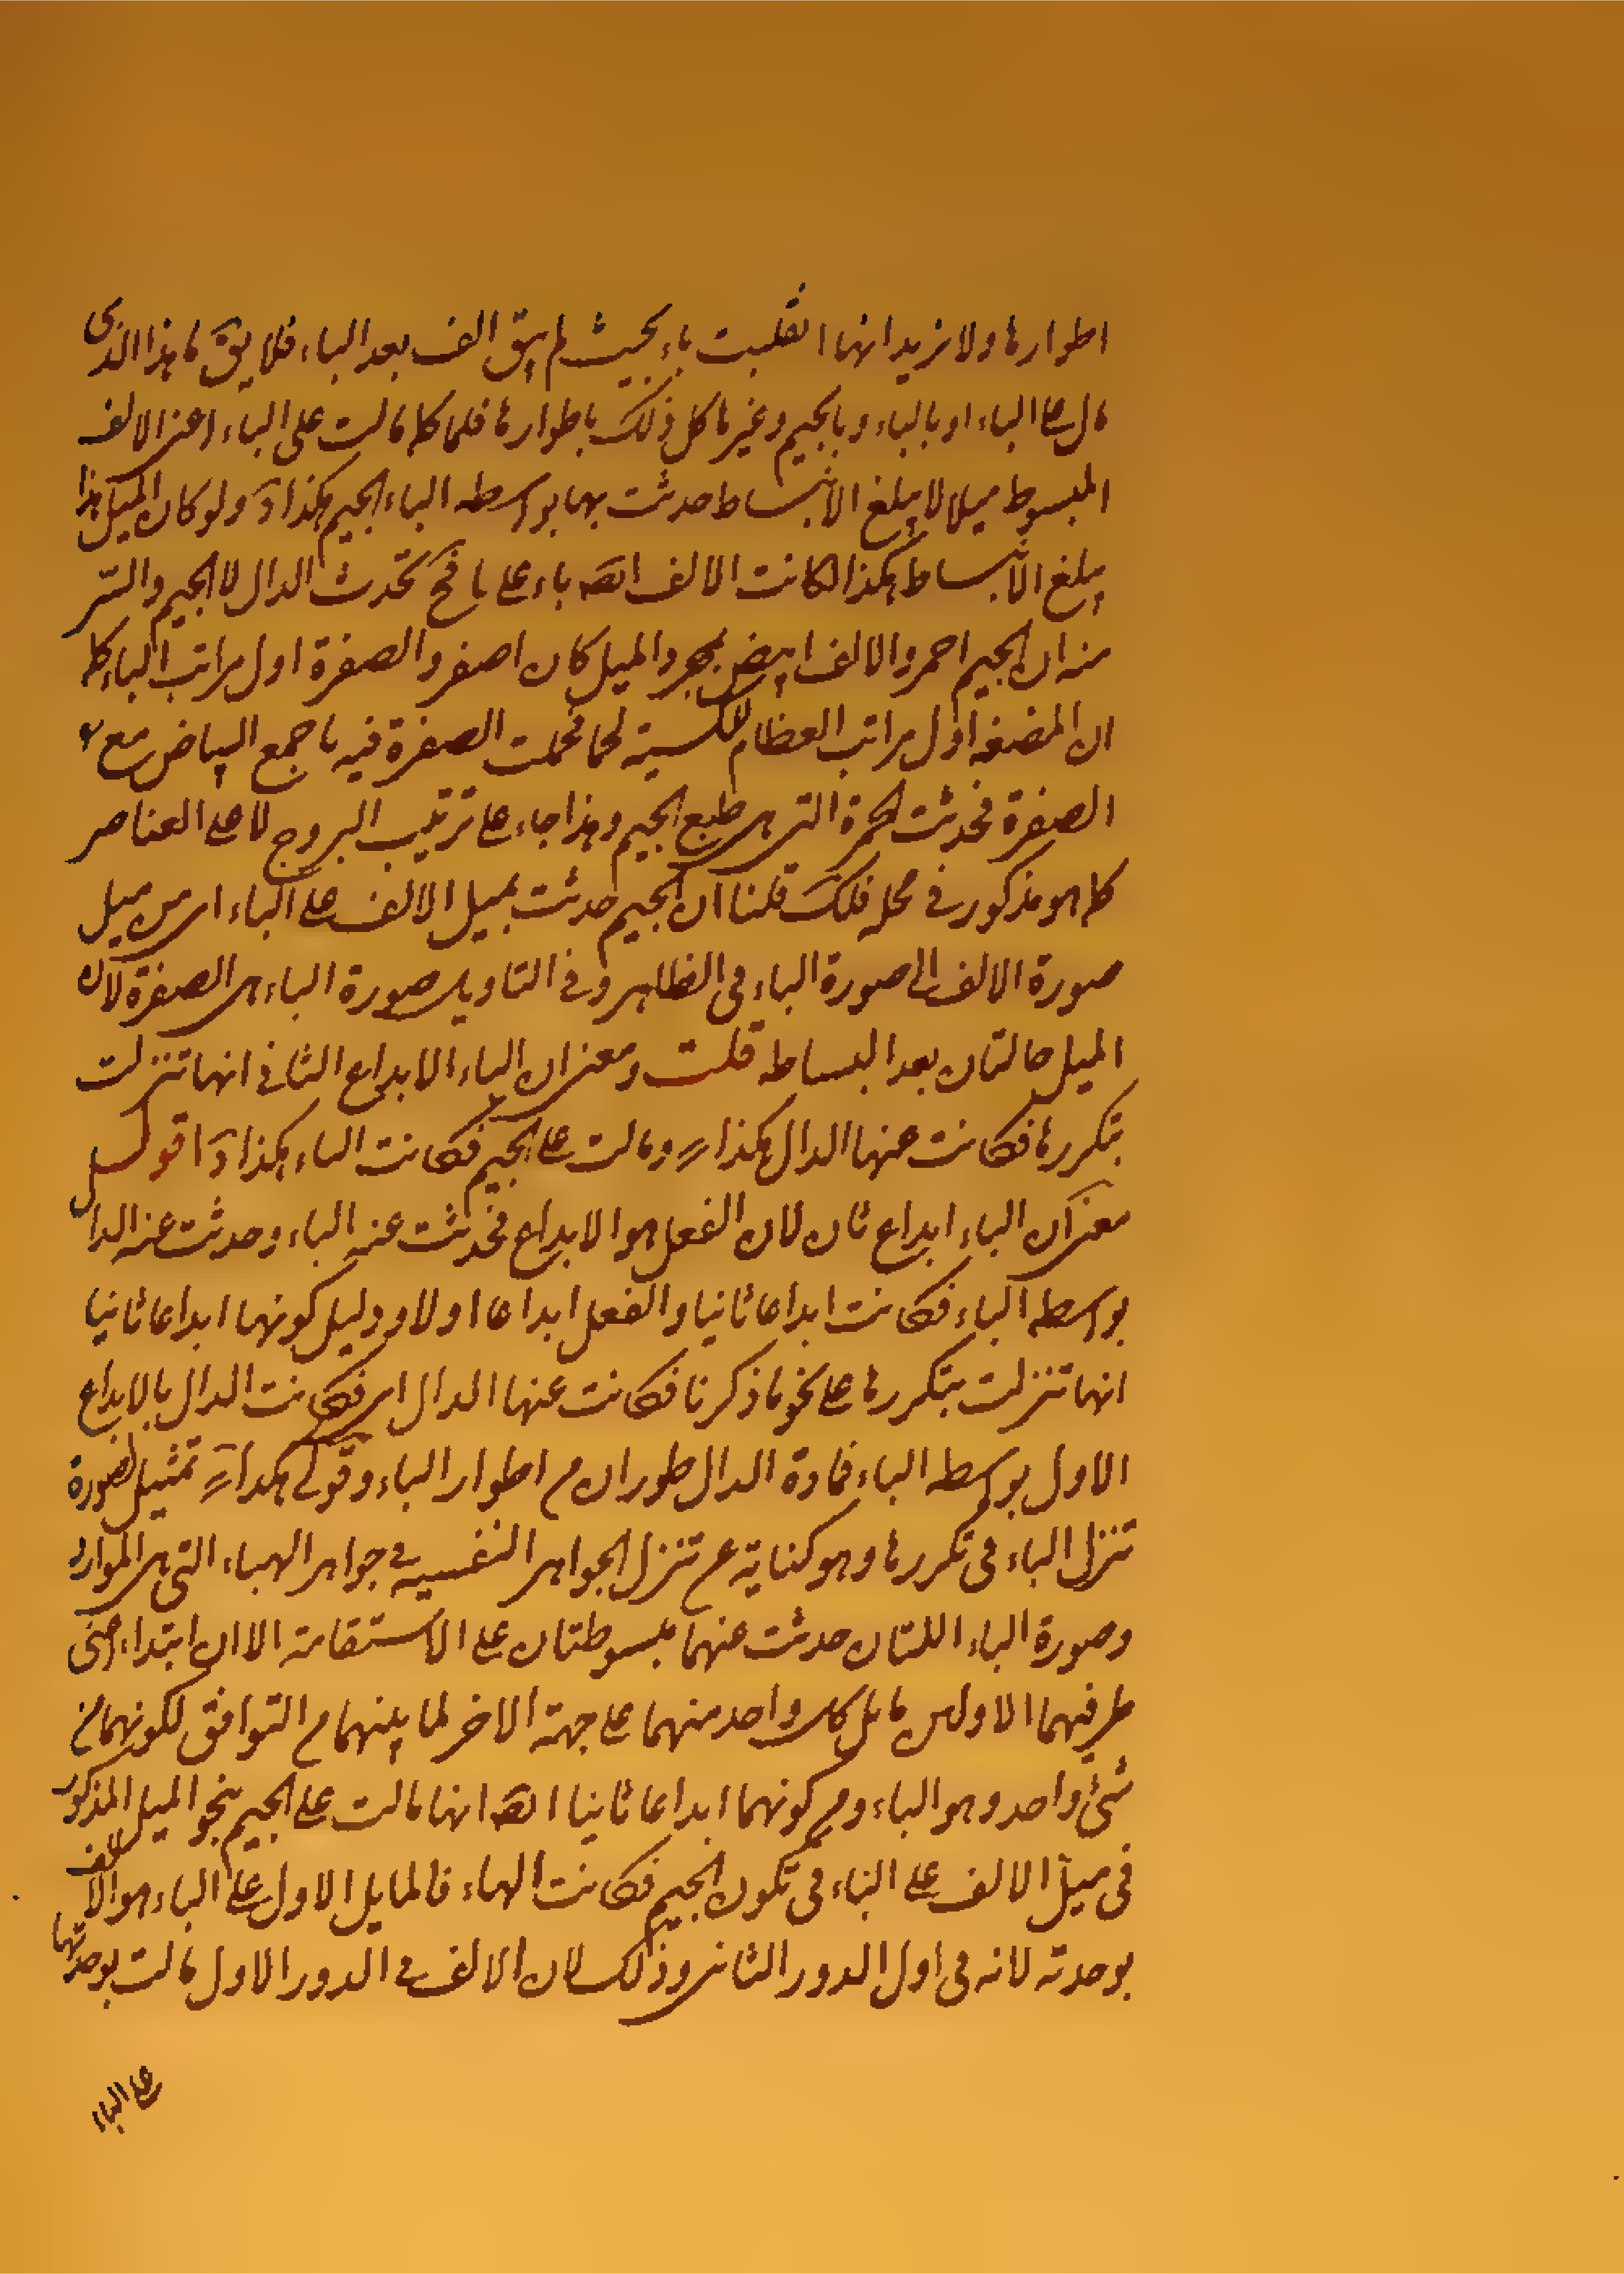 اطوارها ولا نريد انها انقلبت باء بحيث لم يبق الف بعد الباء فلا يق ما هذا الذى
مال على الباء او بالباء وبالجيم وغيرها كل ذلك باطوارها فلما كلما مالت على الباء اعنى الالف
المبسوط ميلا لا يبلغ الانبساط حدثت بها بواسطه الباء الجيم هكذا ولو كان الميل هذا
يبلغ الانبساط هكذا لكانت الالف ايضه باء على تحدث الدال لا الجيم والسّر
منه ان الجيم احمر والالف ابيض بمجرد الميل كان اصفر والصفرة اول مراتب الباء كما
ان المضغه اول مراتب العظام لحما فحملت الصفرة فيه ما جمع البياض مع
الصفرة فحدثت الحمرة التى هى طبع الجيم وهذا جاء على ترتيب البروج لا على العناصر
كما هو مذكور فى محله فلك قلنا ان الجيم حدثت بميل الالف على الباء اى من ميل
صورة الالف الى صورة الباء فى الظاهر وفى التاويل صورة الباء هى الصفرة لان
الميل حالتان بعد البساطه قلت ومعنى ان الباء الابداع الثانى انها تنزلت
بتكررها فكانت عنها الدال هكذا ومالت على الجيم فكانت الباء هكذا اقول
معنى ان الباء ابداع ثان لان الفعل هو الابداع فحدثت عنه الباء وحدثت عنه الدال
بواسطه الباء فكانت ابداعا ثانيا والفعل ابداعا اولا ودليل كونهما ابداعا ثانيا
انها تنزلت بتكررها على نحو ما ذكرنا فكانت عنها الدال اى فكانت الدال بالابداع
الاول بواسطه الباء فمادة الدال طوران م اطوار الباء وقولى هكذا تمثيل لصورة
تنزل الباء فى تكررها وهو كناية عن تنزل الجواهر النفسيه فى جواهر الهباء التى هى المواد
وصورة الباء اللتان حدثت عنهما مبسوطتان على الاستقامة الا ان ابتداء
طرفيهما الاولى مايل كل واحد منهما على جهة الاخر لما بينهما م التوافق لكونهما من
شئ واحد وهو الباء وم كونهما ابداعا ثانيا ايضه انها مالت على الجيم بنحو الميل المذكور
فى ميل الالف على الباء فى تكون الجيم فكانت الهاء فالمايل الاول على الباء هو الالف
بوحدته لانه فى اول الدور الثانى وذلك لان الالف فى الدور الاول مالت بوحدتها
على الباء